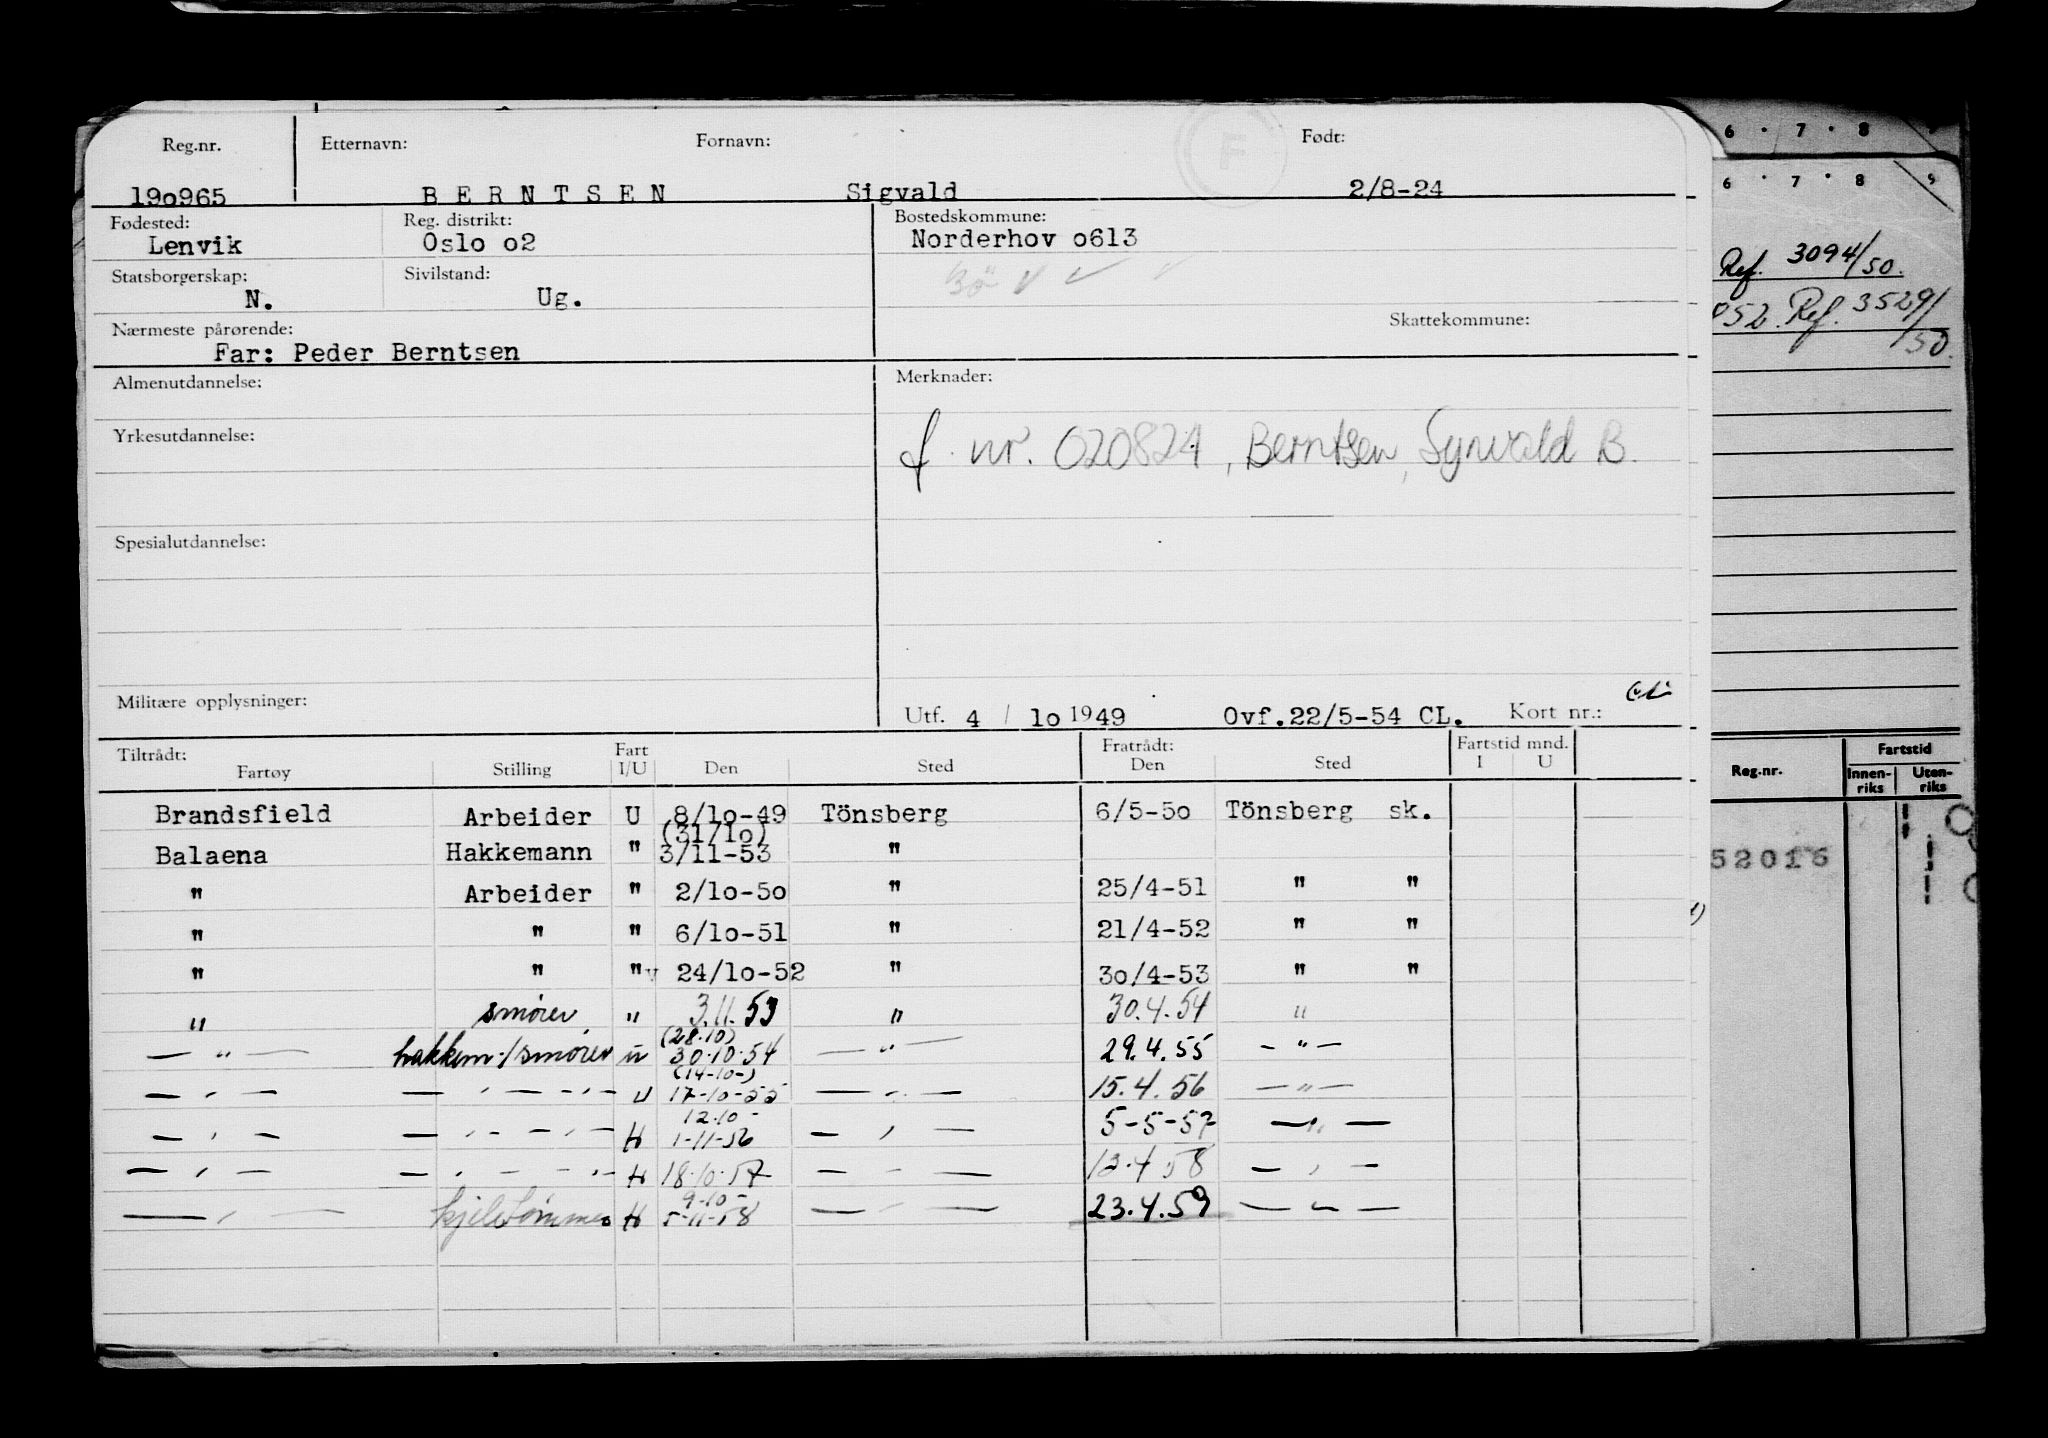 Reg.nr. Etternavn: Fornavn: Født:
19o965 B E R N T S E N Sigvald 2/8-24
Fødested: Reg. distrikt: Bostedskommune:
Lenvik Oslo o2 Norderhov o613
Statsborgerskap: Sivilstand:
N. Ug.
Skattekommune:
Nærmeste pårørende:
Far: Peder Berntsen
Almenutdannelse: Merknader:
Yrkesutdannelse: f. nr. 020824, Berntsen, Synvald B.
Spesialutdannelse:
Militære opplysninger: Utf. 4 / 1o 1949 Ovf.22/5-54 CL. Kort nr.:
Tiltrådt: Fart Fratrådt: Fartstid mnd.
Fartøy Stilling I/U Den Sted Den Sted I U
Brandsfield Arbeider U 8/1o-49 Tönsberg 6/5-5o Tönsberg sk.
(31/1o)
Balaena Hakkemann " 3/11-53 "
" Arbeider " 2/1o-5o " 25/4-51 " "
" " " 6/1o-51 " 21/4-52 " "
" " " 24/1o-52 " 3o/4-53 " "
" smører " 3.11.53 " 30.4.54 "
(28.10)
— " — hakkem./smører u 30.10.54 — " — 29.4.55 — " —
(14-10-)
— " — — " — — " — u 17-10-55 — " — 15.4.56 — " —
12.10 -
— " — — " — — " — H 1-11-56 — " — 5-5-57 — " —
— " — — " — — " — H 18.10.57 — " — 12.4 58 — " —
9-10 -
— " — kjeletømmer H 5-11-58 — " — 23.4.59 — " —
6 · 7 · 8
6 · 7 · 8 9
Ref. 3094/50.
52. Ref. 3529/
50.
Reg.nr. Fartstid
Innen-riks Uten-riks
52016
F